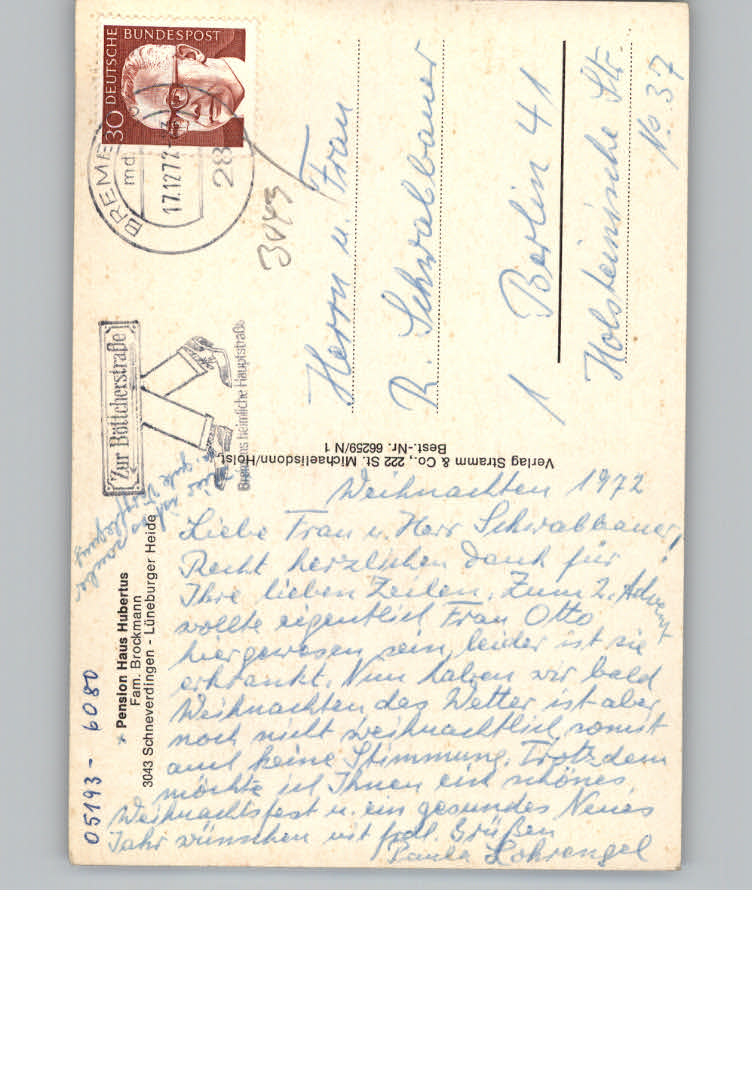 DEUTSCHE BUNDESPOST
30
BREMEN
md
17.12.72
28
Zur Böttcherstraße
Bremens heimliche Hauptstraße
3043
Herrn u. Frau
R. Schwalbauer
1 Berlin 41
Holsteinische Str.
No. 37
Verlag Stramm & Co., 222 St. Michaelisdonn/Holst.
Best.-Nr. 66259/N 1
Pension Haus Hubertus
Fam. Brockmann
3043 Schneverdingen - Lüneburger Heide
05193 - 6080
sauber
gute Verpflegung
Weihnachten 1972
Liebe Frau u. Herr Schwalbauer!
Recht herzlichen Dank für
Ihre lieben Zeilen. Zum 2. Advent
wollte eigentlich Frau Otto
hergewesen sein, leider ist sie
erkrankt. Nun haben wir bald
Weihnachten das Wetter ist aber
noch nicht weihnachtlich, somit
auch keine Stimmung. Trotzdem
möchte ich Ihnen ein schönes
Weihnachtsfest u. ein gesundes Neues
Jahr wünschen mit frdl. Grüßen
Paula Lohrengel